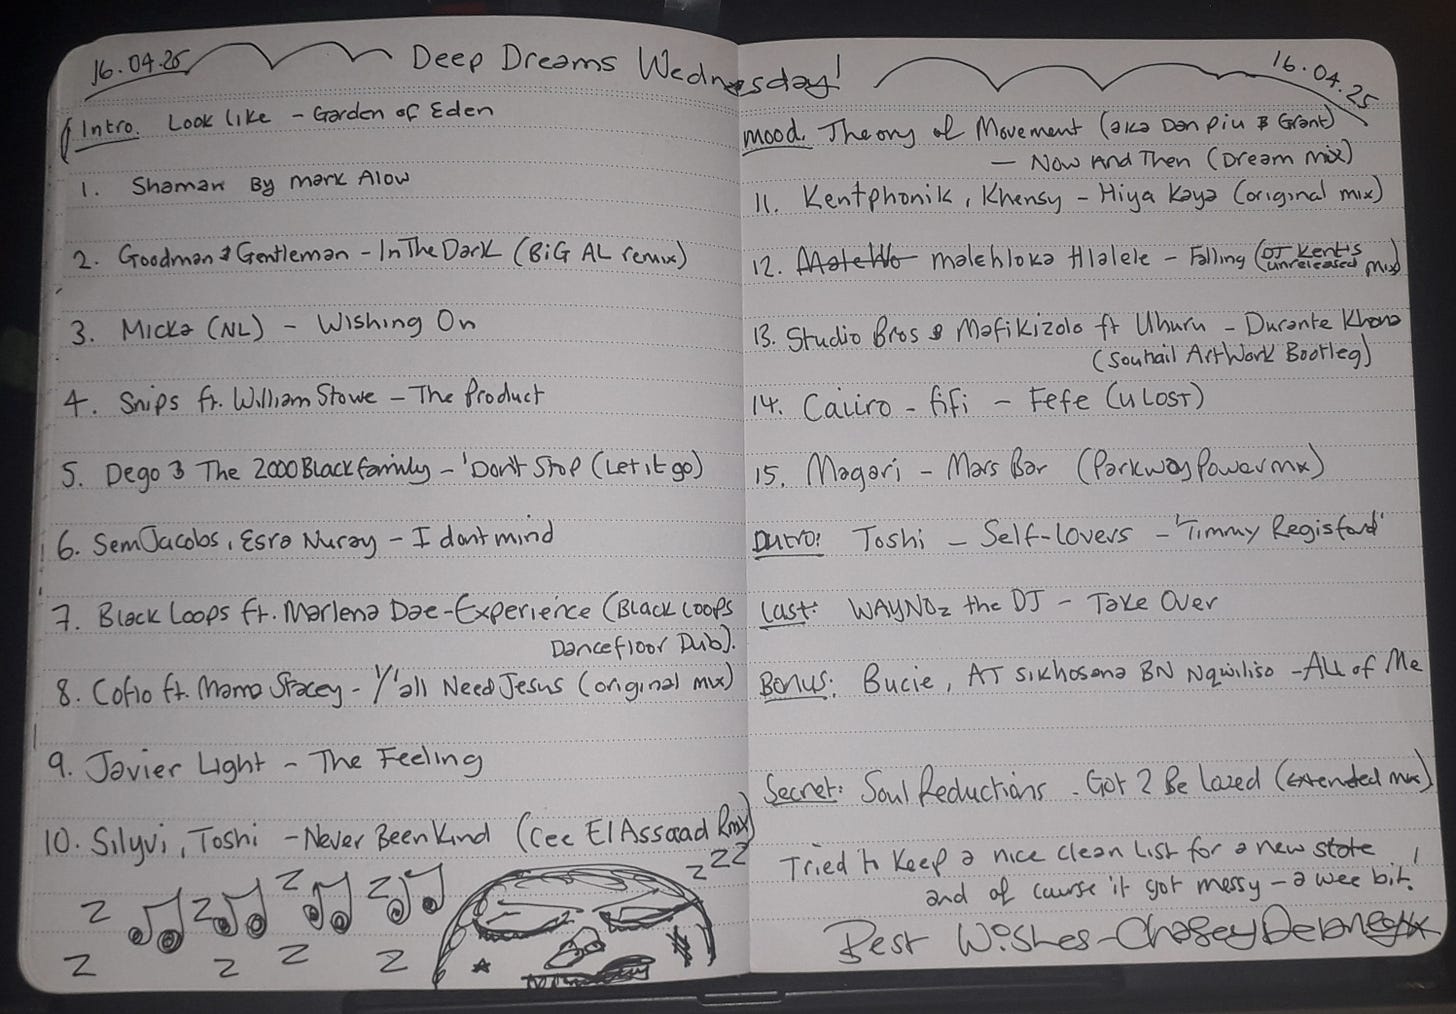 16.04.25 Deep Dreams Wednesday! 16.04.25
Intro. Look like - Garden of Eden
1. Shaman By Mark Alow
2. Goodman & Gentleman - In The Dark (BiG AL remix)
3. Micka (NL) - Wishing On
4. Snips ft. William Stowe - The Product
5. Dego & The 2000Blackfamily - 'Don't Stop (Let it go)
6. Sem Jacobs, Esra Nuray - I dont mind
7. Black Loops ft. Marlena Dae - Experience (Black Loops
Dancefloor Dub).
8. Coflo ft. Mama Stacey - Y'all Need Jesus (original mix)
9. Javier Light - The Feeling
10. Silyvi, Toshi - Never Been Kind (Cee ElAssaad Rmx)
z z z z z z z z
zzz
mood. Theory of Movement (aka Dan Piu & Grant)
- Now And Then (Dream mix)
11. Kentphonik, Khensy - Hiya Kaya (original mix)
12. malehloka Hlalele - Falling (DJ Kent's unreleased mix)
13. Studio Bros & Mafikizolo ft Uhuru - Durante Khona
(Souhail ArtWork Bootleg)
14. Caiiro - fifi - Fefe (U LOST)
15. Magari - Mars Bar (Parkway Power mx)
Outro: Toshi - Self-Lovers - 'Timmy Regisford'
Last: WAYNOz the DJ - Take Over
Bonus: Bucie, AT Sikhosana BN Nqwiliso - ALL of Me
Secret: Soul Reductions - Got 2 Be Loved (extended mx)
Tried to keep a nice clean list for a new state
and of caurse it got messy - a wee bit!
Best Wishes - Chasey Delaney